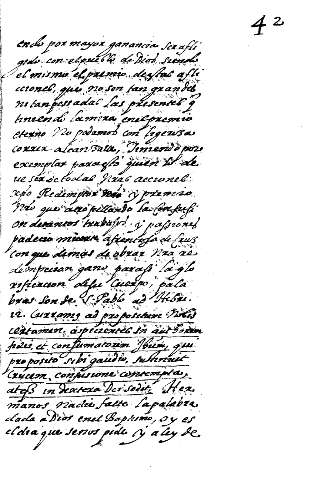 42
endo por mayor ganancia ser afli
gido con el pueblo de Dios, siendo
el mismo el premio de estas afli
cciones, que no son tan grandes
ni tan pessadas las presentes y
teniendo la mira en el premio
eterno No podamos con
correr a teniendo por
exemplar para esto quien de
ve ser de todas nras acciones
xpo Redemptor nro y premio
Nro que la confussi
on de trabajos y passiones
padecio afrentosa de Cruz
con que demas de obrar Nra re
dempcion gano para si la glo
rificacion de su Cuerpo, pala
bras son de S. Pablo ad Hebre
12 Curramus ad propositum Nobis
certamen, aspicientes in auctorem
fidei, et consumatorem Jhsum, qui
proposito sibi gaudio, sustinuit
Crucem, confusione contempta,
atq in dextera Dei sedet. Her
manos Nadie falte la palabra
dada a Dios en el Baptismo, oy es
el dia que se nos pide y a ley de